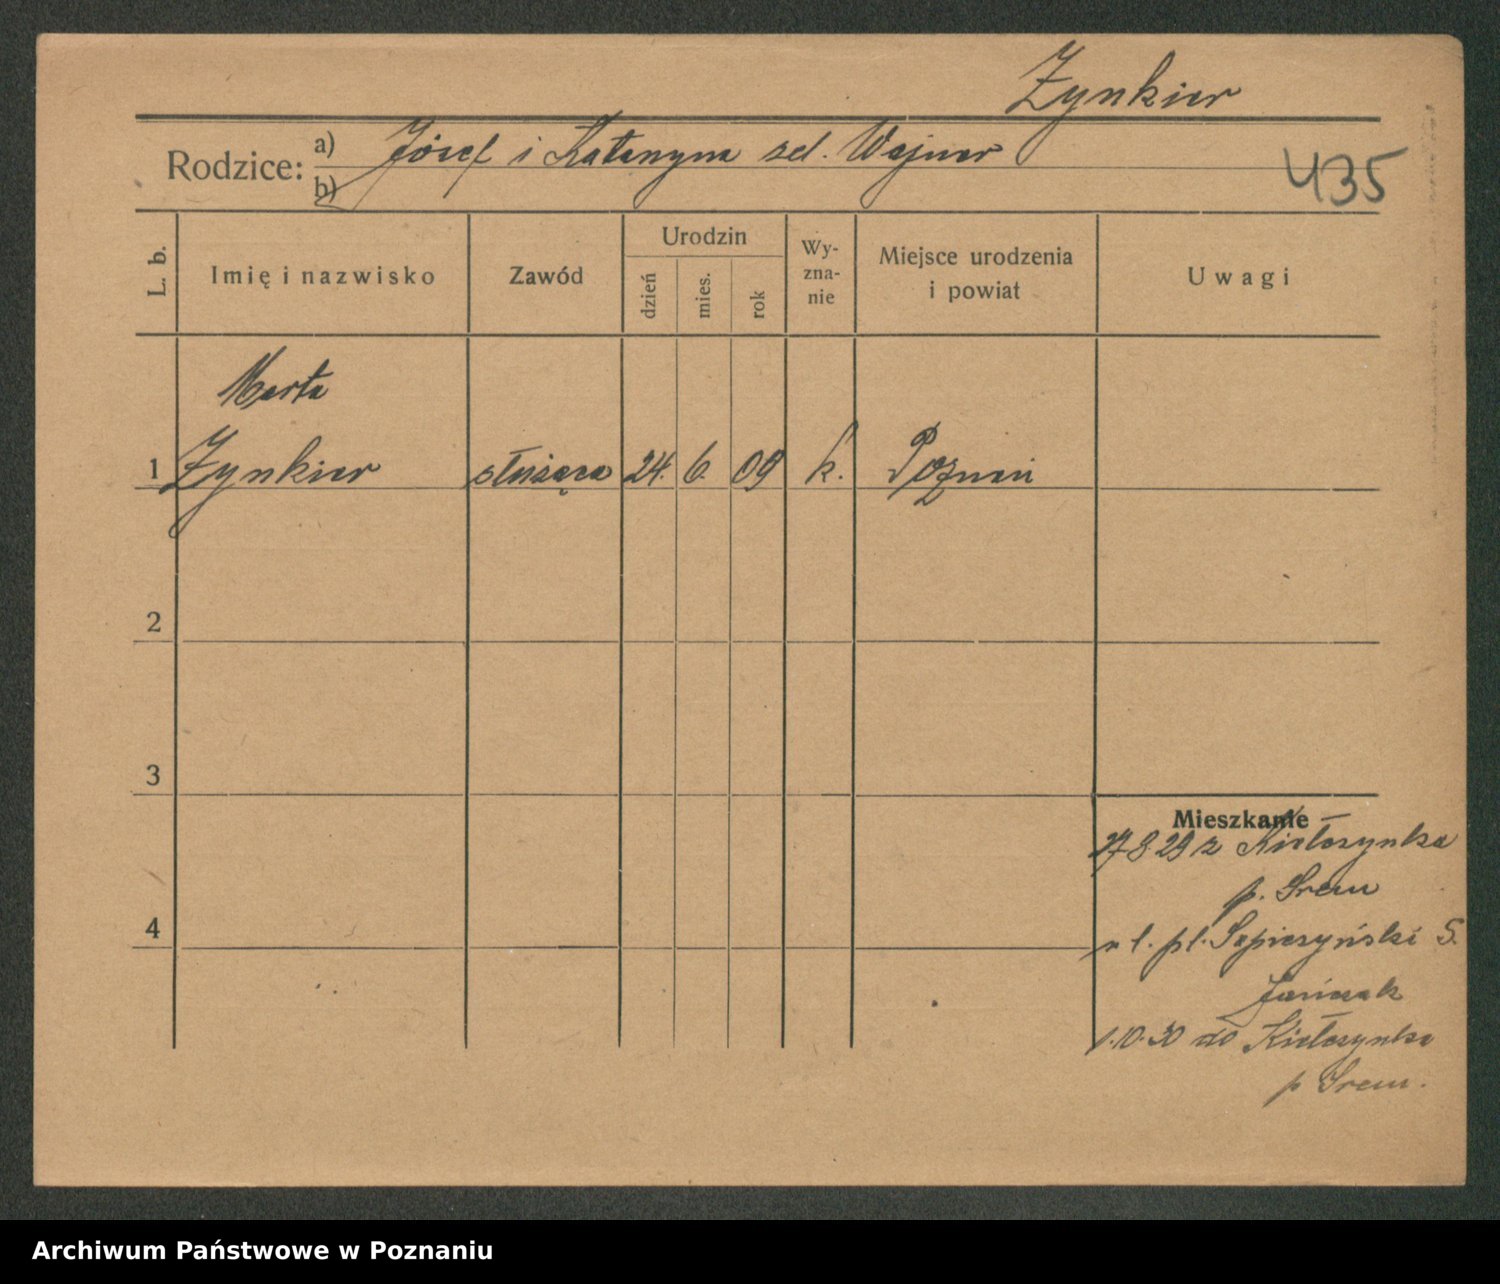 Zynkier
Rodzice: a) Józef i Katarzyna zd. Wajner
b)
435
L. b.
Imię i nazwisko
Zawód
Urodzin
dzień
mies.
rok
Wy-
zna-
nie
Miejsce urodzenia
i powiat
Uwagi
Marta
1 Zynkier służąca 24. 6. 09 k. Poznań
2
3
Mieszkanie
27 8 29 z Kiełczynka
p. Śrem
4
pl. Sapieżyński 5.
1.10.30 do Kiełczynka
p Śrem.
Archiwum Państwowe w Poznaniu